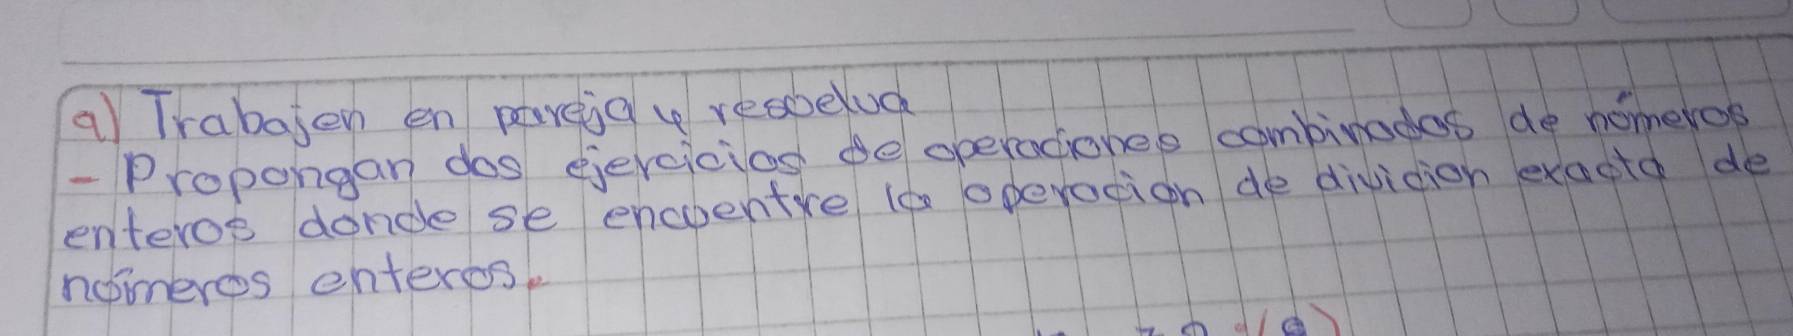 a) Trabajen en pareja y resuelva
- Propongan dos ejercicios de operaciones combinados de números
enteros donde se encuentre la operación de divición exacta de
números enteros.